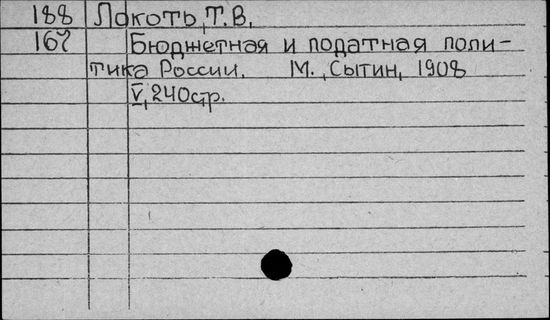 188 Локоть, Т.В,
167 Бюджетная и податная поли-
тика России. М., Сытин, 1908
V, 240стр.